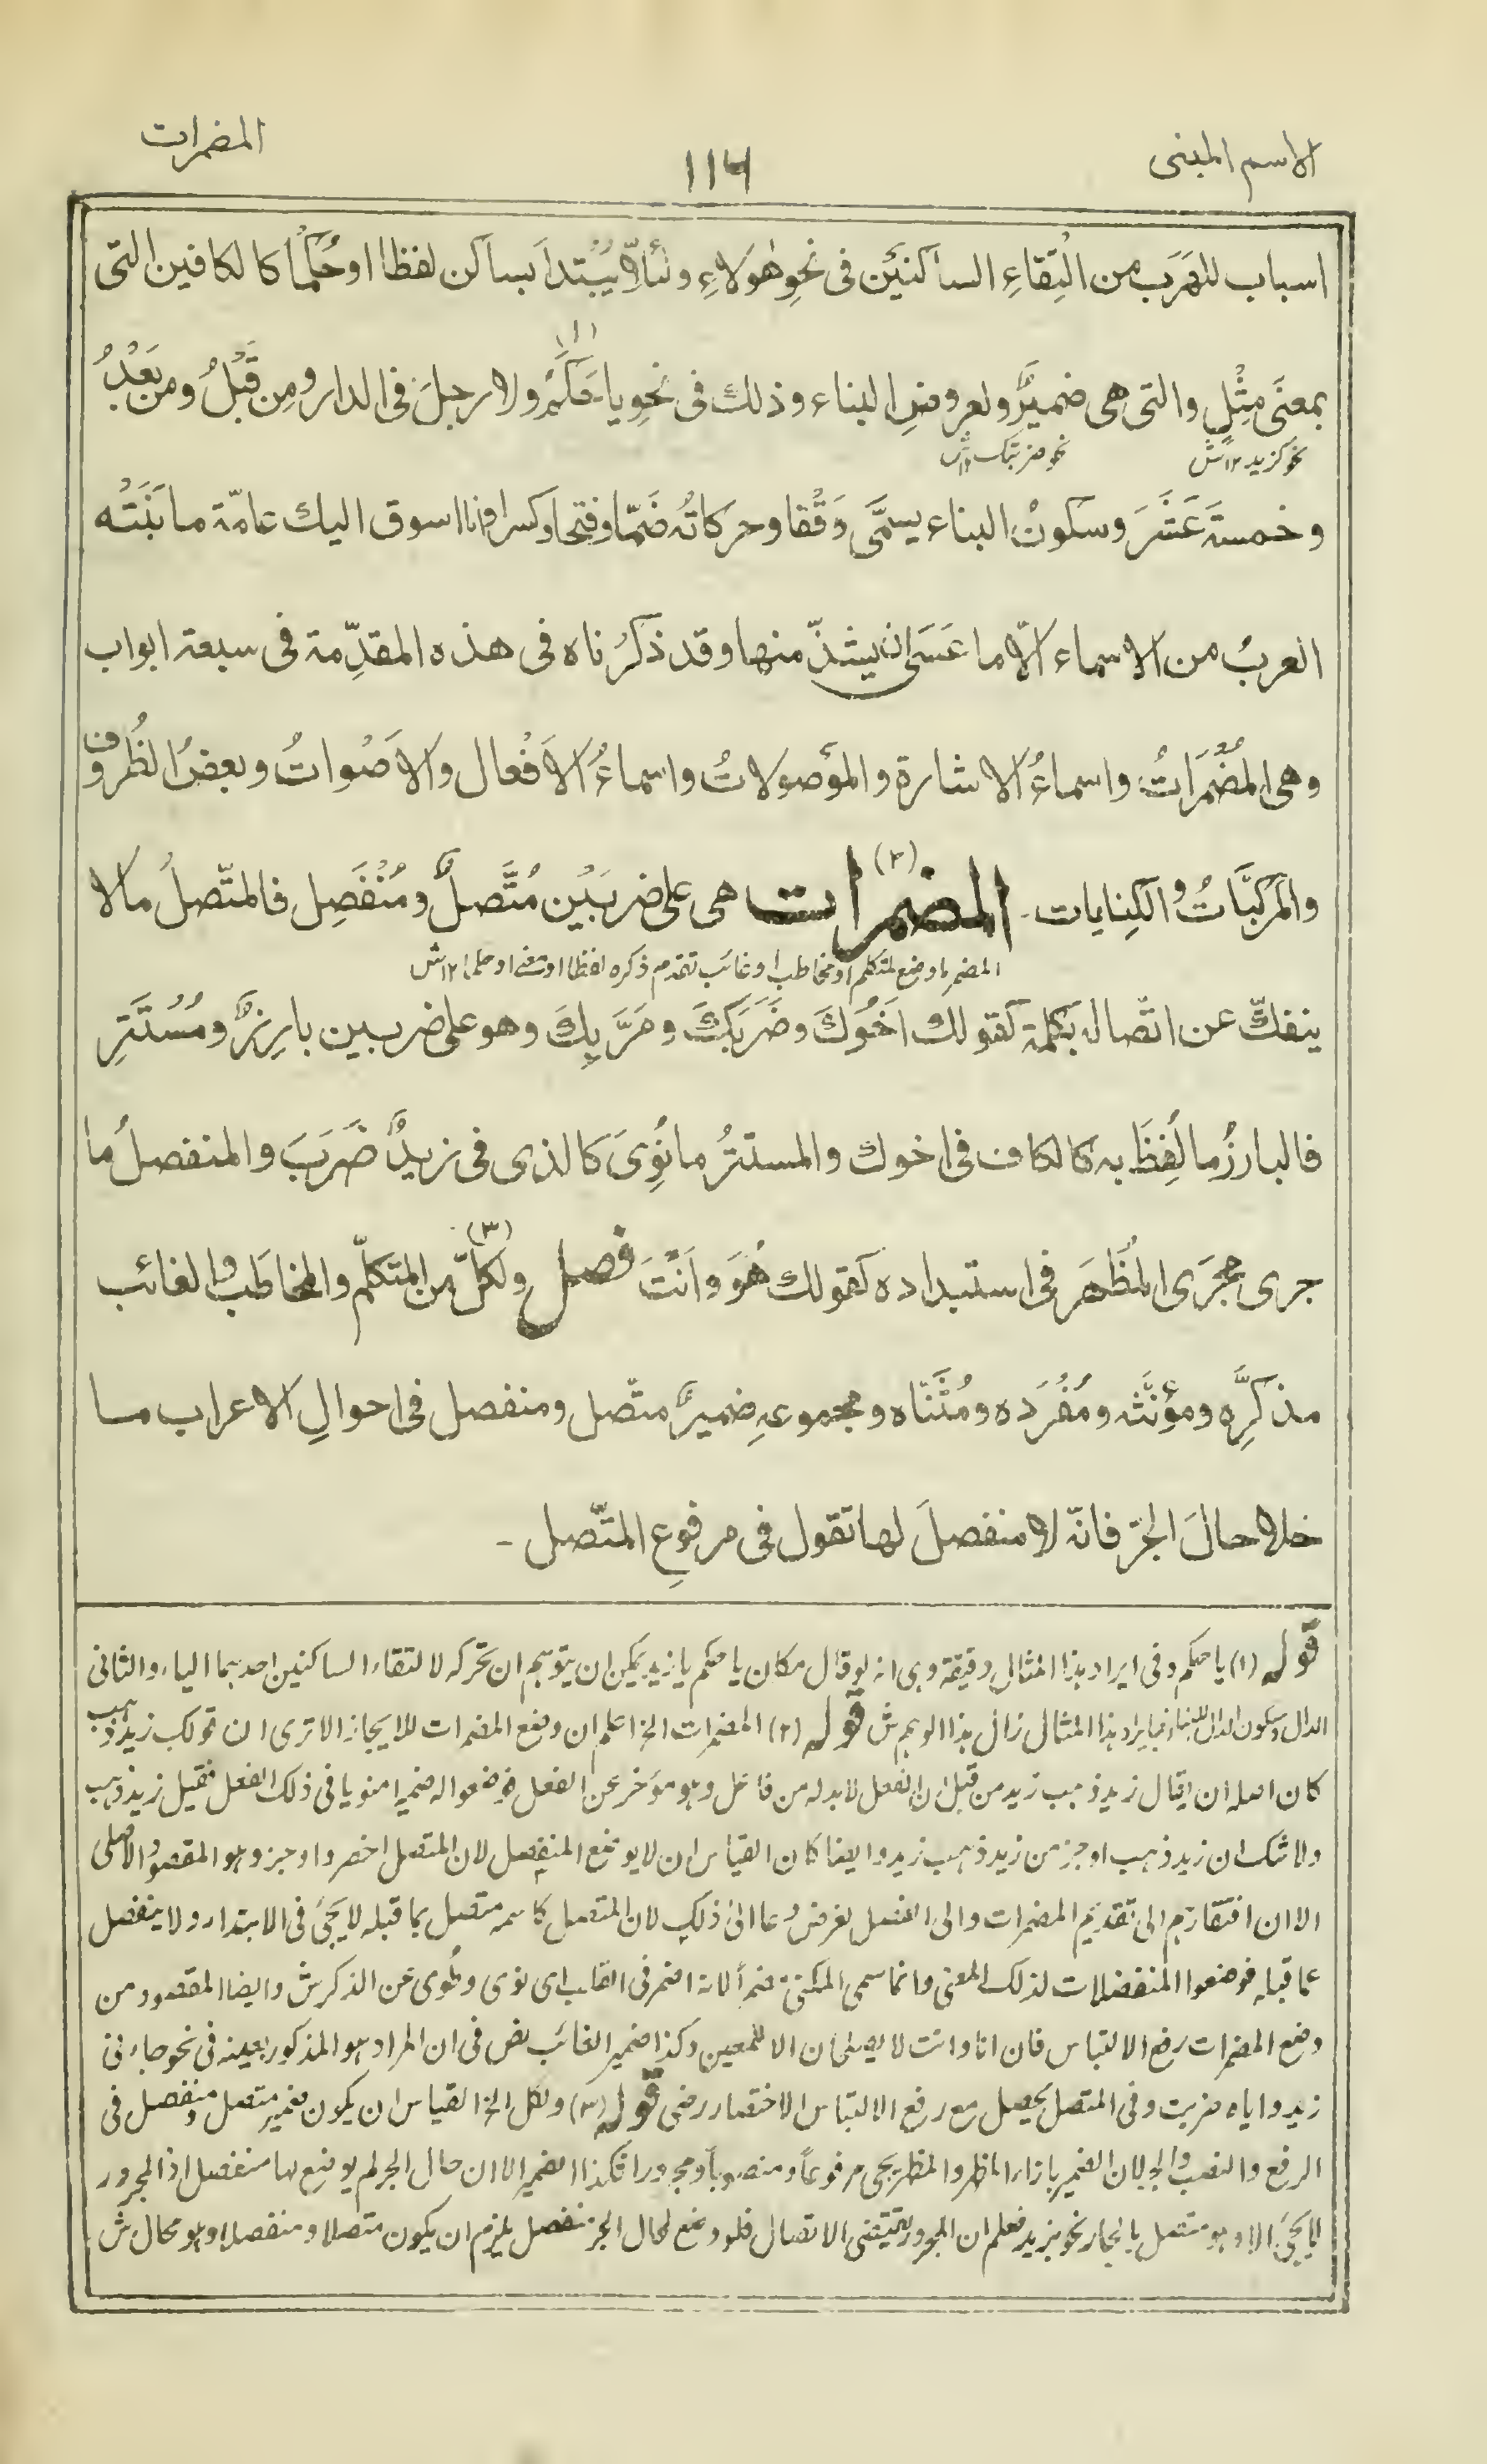 الاسم المبنی
۱۱۶
المضمرات
اسباب للهَرَب من الْتِقاءِ الساکنَیْن فی نحوِ هٰؤلاءِ ولئلّا یُبْتدأ بساکن لفظا او حُکْمًا کالکافین التی
(۱)
بمعنَی مِثْلِ والتی هی ضمیرٌ ولعروض البناء وذلك فی نحوِ یا حَکَمُ ولا رجلَ فی الدار ومن قَبْلُ ومن بَعْدُ
نحو کزید ۱۲ش
نحو ضربتک ۱۲ش
وخمسةَ عَشَرَ وسکونُ البناء یسمَّی وَقْفا وحرکاتُه ضَمّا وفتحا وکسرا وانا اسوق الیك عامّة ما بَنَتْه
العربُ من الاسماء الّا ما عَسَی ان یشذّ منها وقد ذکرْناه فی هذه المقدِّمة فی سبعة ابواب
وهی المُضْمَرَاتُ واسماءُ الاشارة والموصولاتُ واسماءُ الاَفْعال والاَصْواتُ وبعضُ الظُروف
والمرکَّبَاتُ والکِنایات - المضمرات (۲) هی علی ضربَیْن مُتَّصلٌ ومُنْفَصِل فالمتّصلُ ما لا
المضمر ما وضع لمتکلم او مخاطب او غائب تقدم ذکره لفظا او معنی او حکما ۱۲ش
ینفكّ عن اتّصاله بکلمة کقولك اَخُوكَ وضَرَبَكَ ومَرَّ بِكَ وهو علی ضربین بارِزٌ ومُسْتَتِرِ
فالبارزُ ما لُفِظَ به کالکاف فی اخوك والمستترُ ما نُوِیَ کالذی فی زیدٌ ضَرَبَ والمنفصلُ ما
جری مجرَی المُظْهَر فی استبداده کقولك هُوَ واَنْتَ فصل (۳) ولکلّ من المتکلّم والمخاطَب والغائب
مذکرِّه ومؤنَّثه ومُفْرَده ومُثَنَّاه ومجموعِه ضمیرٌ متّصل ومنفصل فی احوالِ الاعراب ما
خلا حالَ الجرّ فانّه لا منفصلَ لها تقول فی مرفوعِ المتّصل -
قوله (۱) یا حکم وفی ایراد هذا المثال دقیقة وهی انه لو قال مکان یا حکم یا زید یمکن ان یتوهم ان تحرکه لالتقاء الساکنین احدهما الیاء والثانی
الدال وسکون الدال للبناء فبایراد هذا المثال زال هذا الوهم ش قوله (۲) المضمرات الخ اعلم ان وضع المضمرات للایجاز الا تری ان قولک زید ذهب
کان اصله ان یقال زید ذهب زید من قبل ان الفعل لابد له من فاعل وهو مؤخر عن الفعل فوضعوا له ضمیرا منویا فی ذلک الفعل فقیل زید ذهب
ولا شک ان زید ذهب اوجز من زید ذهب زید وایضا کان القیاس ان لا یوضع المنفصل لان المتصل اخصر واوجز وهو المقصود الاصلی
الا ان افتقارهم الی تقدیم المضمرات والی الفصل لغرض دعا الی ذلک لان المتصل کاسمه متصل بما قبله لا یجئ فی الابتداء ولا ینفصل
عما قبله فوضعوا المنفصلات لذلک المعنی وانما سمی المکنی مضمرا لانه اضمر فی القلب ای نوی وطوی عن الذکر ش وایضا المقصود من
وضع المضمرات رفع الالتباس فان انا وانت لا یصلحان الا للمعین وکذا ضمیر الغائب نص فی ان المراد هو المذکور بعینه فی نحو جاءنی
زید وایاه ضربت وفی المتصل یحصل مع رفع الالتباس الاختصار رضی قوله (۳) ولکل الخ القیاس ان یکون ضمیر متصل ومنفصل فی
الرفع والنصب والجر لان الضمیر بازاء المظهر والمظهر یجئ مرفوعاً ومنصوباً ومجرورا فکذا الضمیر الا ان حال الجر لم یوضع لها منفصل اذ المجرور
لا یجئ الا وهو متصل بالجار نحو بزید فعلم ان المجرور یقتضی الاتصال فلو وضع لحال الجر منفصل یلزم ان یکون متصلا ومنفصلا وهو محال ش